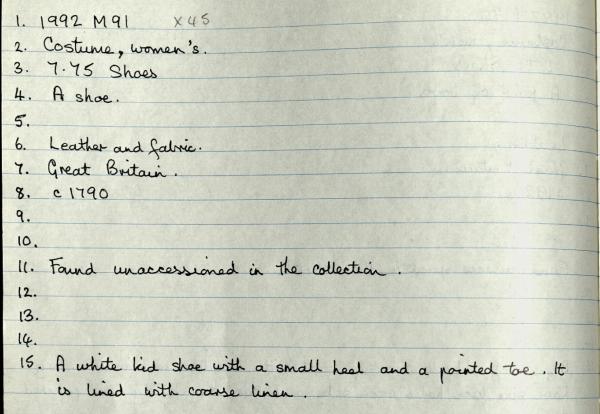 1. 1992 M91 x45
2. Costume, women's.
3. 7.75 Shoes
4. A shoe.
5.
6. Leather and fabric.
7. Great Britain.
8. c 1790
9.
10.
11. Found unaccessioned in the collection.
12.
13.
14.
15. A white kid shoe with a small heel and a pointed toe. It
is lined with coarse linen.